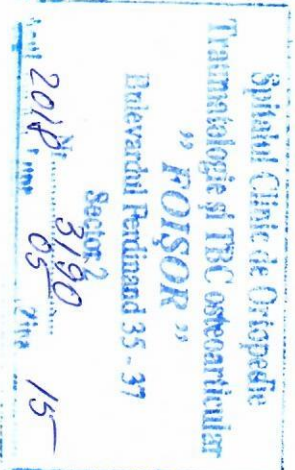 Spitalul Clinic de Ortopedie
Traumatologie și TBC osteoarticular
„ FOIȘOR ”
Bulevardul Ferdinand 35 - 37
Sector 2
Nr. 3190
2018 05 Ziua 15